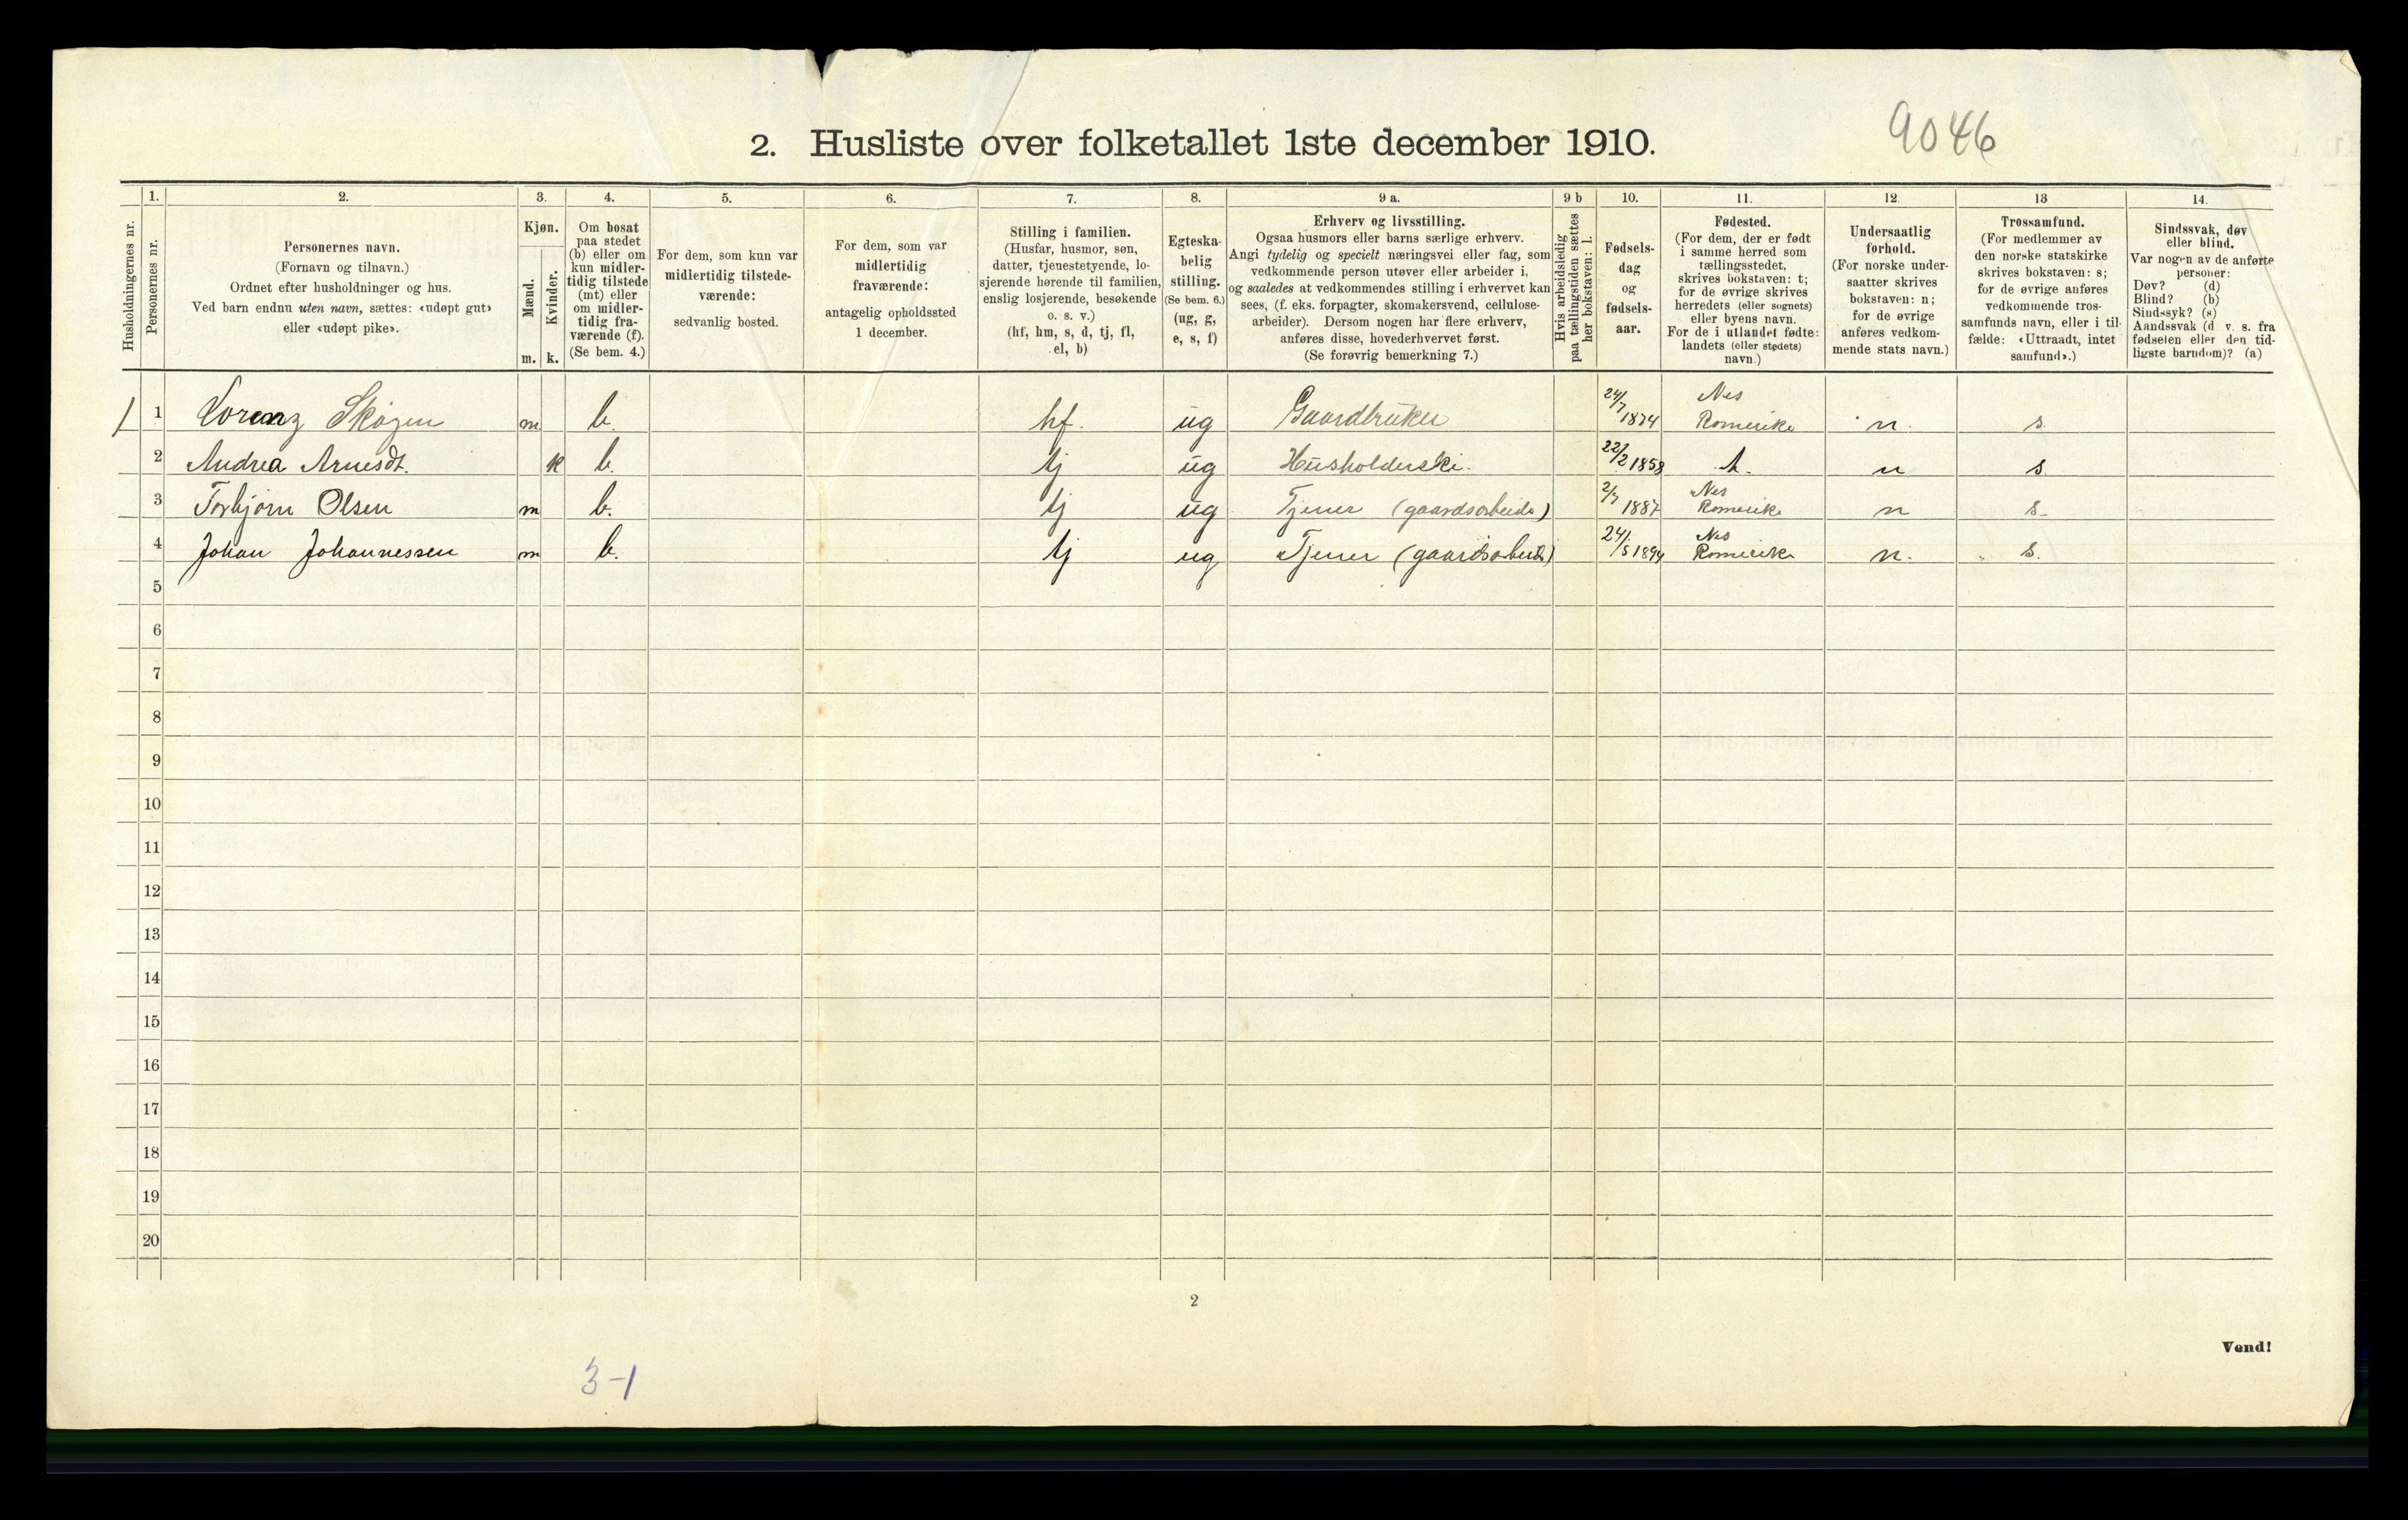 9046
2. Husliste over folketallet 1ste december 1910.
Husholdningernes nr.
1.
Personernes nr.
2.
Personernes navn.
(Fornavn og tilnavn.)
Ordnet efter husholdninger og hus.
Ved barn endnu uten navn, sættes: «udøpt gut»
eller «udøpt pike».
3.
Kjøn.
Mænd.
m.
Kvinder.
k.
4.
Om bosat
paa stedet
(b) eller om
kun midler-
tidig tilstede
(mt) eller
om midler-
tidig fra-
værende (f).
(Se bem. 4.)
5.
For dem, som kun var
midlertidig tilstede-
værende:
sedvanlig bosted.
6.
For dem, som var
midlertidig
fraværende:
antagelig opholdssted
1 december.
7.
Stilling i familien.
(Husfar, husmor, søn,
datter, tjenestetyende, lo-
sjerende hørende til familien,
enslig losjerende, besøkende
o. s. v.)
(hf, hm, s, d, tj, fl,
el, b)
8.
Egteska-
belig
stilling.
(Se bem. 6.)
(ug, g,
e, s, f)
9 a.
Erhverv og livsstilling.
Ogsaa husmors eller barns særlige erhverv.
Angi tydelig og specielt næringsvei eller fag, som
vedkommende person utøver eller arbeider i,
og saaledes at vedkommendes stilling i erhvervet kan
sees, (f. eks. forpagter, skomakersvend, cellulose-
arbeider). Dersom nogen har flere erhverv,
anføres disse, hovederhvervet først.
(Se forøvrig bemerkning 7.)
9 b
Hvis arbeidsledig
paa tællingstiden sættes
her bokstaven: l.
10.
Fødsels-
dag
og
fødsels-
aar.
11.
Fødested.
(For dem, der er født
i samme herred som
tællingsstedet,
skrives bokstaven: t;
for de øvrige skrives
herredets (eller sognets)
eller byens navn.
For de i utlandet fødte:
landets (eller stedets)
navn.)
12.
Undersaatlig
forhold.
(For norske under-
saatter skrives
bokstaven: n;
for de øvrige
anføres vedkom-
mende stats navn.)
13
Trossamfund.
(For medlemmer av
den norske statskirke
skrives bokstaven: s;
for de øvrige anføres
vedkommende tros-
samfunds navn, eller i til-
fælde: «Uttraadt, intet
samfund».)
14.
Sindssvak, døv
eller blind.
Var nogen av de anførte
personer:
Døv? (d)
Blind? (b)
Sindssyk? (s)
Aandssvak (d v. s. fra
fødselen eller den tid-
ligste barndom)? (a)
1 1 Lorenz Skogen m b. hf. ug Gaardbruker 24/7 1874 Nes Romerike n. s.
2 Andrea Arnesdt. k b. tj ug Husholderske. 22/2 1858 t. n s.
3 Torbjørn Olsen m b. tj ug Tjener (gaardsarbeide) 2/7 1887 Nes Romerike n s.
4 Johan Johannessen m b. tj ug Tjener (gaardsarbeide) 24/5 1894 Nes Romerike n. s.
5
6
7
8
9
10
11
12
13
14
15
16
17
18
19
20
2
Vend!
3-1